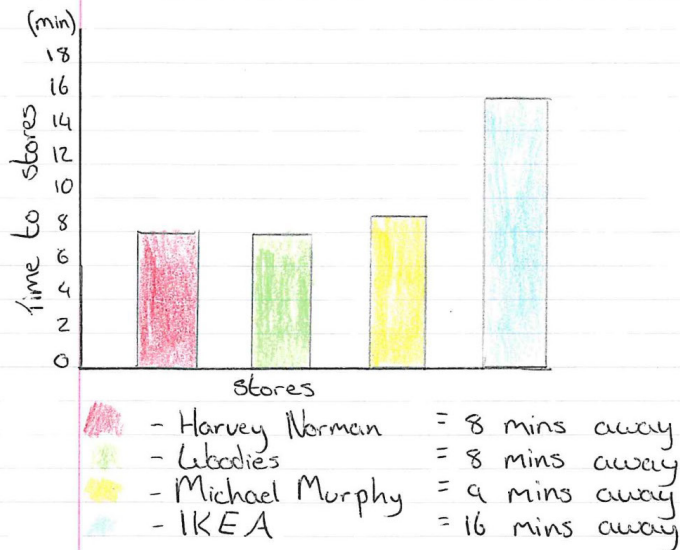 (min)
18
16
14
12
10
8
6
4
2
0
Time to stores
stores
- Harvey Norman = 8 mins away
- Woodies = 8 mins away
- Michael Murphy = 9 mins away
- IKEA = 16 mins away